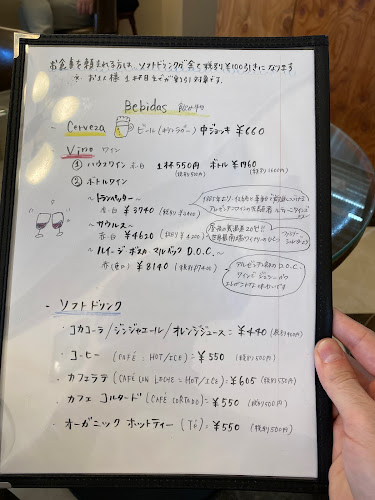 お食事を頼まれる方は、ソフトドリンクが全て税別¥100引きになります
※ お1人様 1杯目までが割引対象です。
Bebidas 飲み物
- Cerveza ビール(キリンラガー) 中ジョッキ ¥660
- Vino ワイン
① ハウスワイン 赤・白 1杯 550円 ボトル ¥1760
(税別500円) (税別1600円)
② ボトルワイン
～トランペッター～
赤・白 ¥3740 (税別¥3400)
～サウルス～
赤・白 ¥4620 (税別¥4200)
～ルイージ ボスカ マルベック D.O.C.～
赤 ¥8140 (税別¥7400)
- ソフトドリンク
・コカコーラ/ジンジャエール/オレンジジュース = ¥440 (税別400円)
・コーヒー (CAFÉ : HOT/ICE) = ¥550 (税別500円)
・カフェラテ (CAFÉ CON LECHE = HOT/ICE) : ¥605 (税別550円)
・カフェ コルタード (CAFÉ CORTADO) = ¥550 (税別500円)
・オーガニック ホットティー (Té) = ¥550 (税別500円)